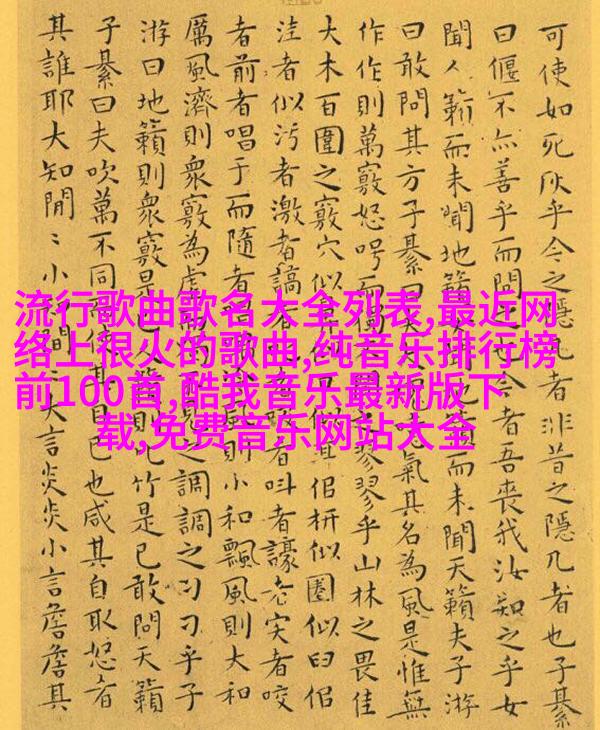 流行歌曲歌名大全列表,最近网
络上很火的歌曲,纯音乐排行榜
前100首,酷我音乐最新版下
载,免费音乐网站大全
可使如死灰乎今之隱几者非昔之隱几者也子綦
曰偃不亦善乎而問之今者吾喪我汝知之乎女
聞人籟而未聞地籟聞而未聞天籟夫子游
曰敢問其方子綦曰大氣其名為風是惟無
作作則萬竅怒呺而獨翏翏乎山林之畏佳
大木百圍之竅穴似似佀枅似圈似臼佀
洼者似污者激者謞者者叫者譹者宎者咬
者前者唱于而隨者則小和飄風則大和
厲風濟則衆竅為虛之調調之刁刁乎子
游曰地籟則衆竅是已則比竹是已敢問天籟
子綦曰夫吹萬不同而使其自已也咸其自取怒者
其誰耶大知閒〻小閒大言炎炎小言詹詹其